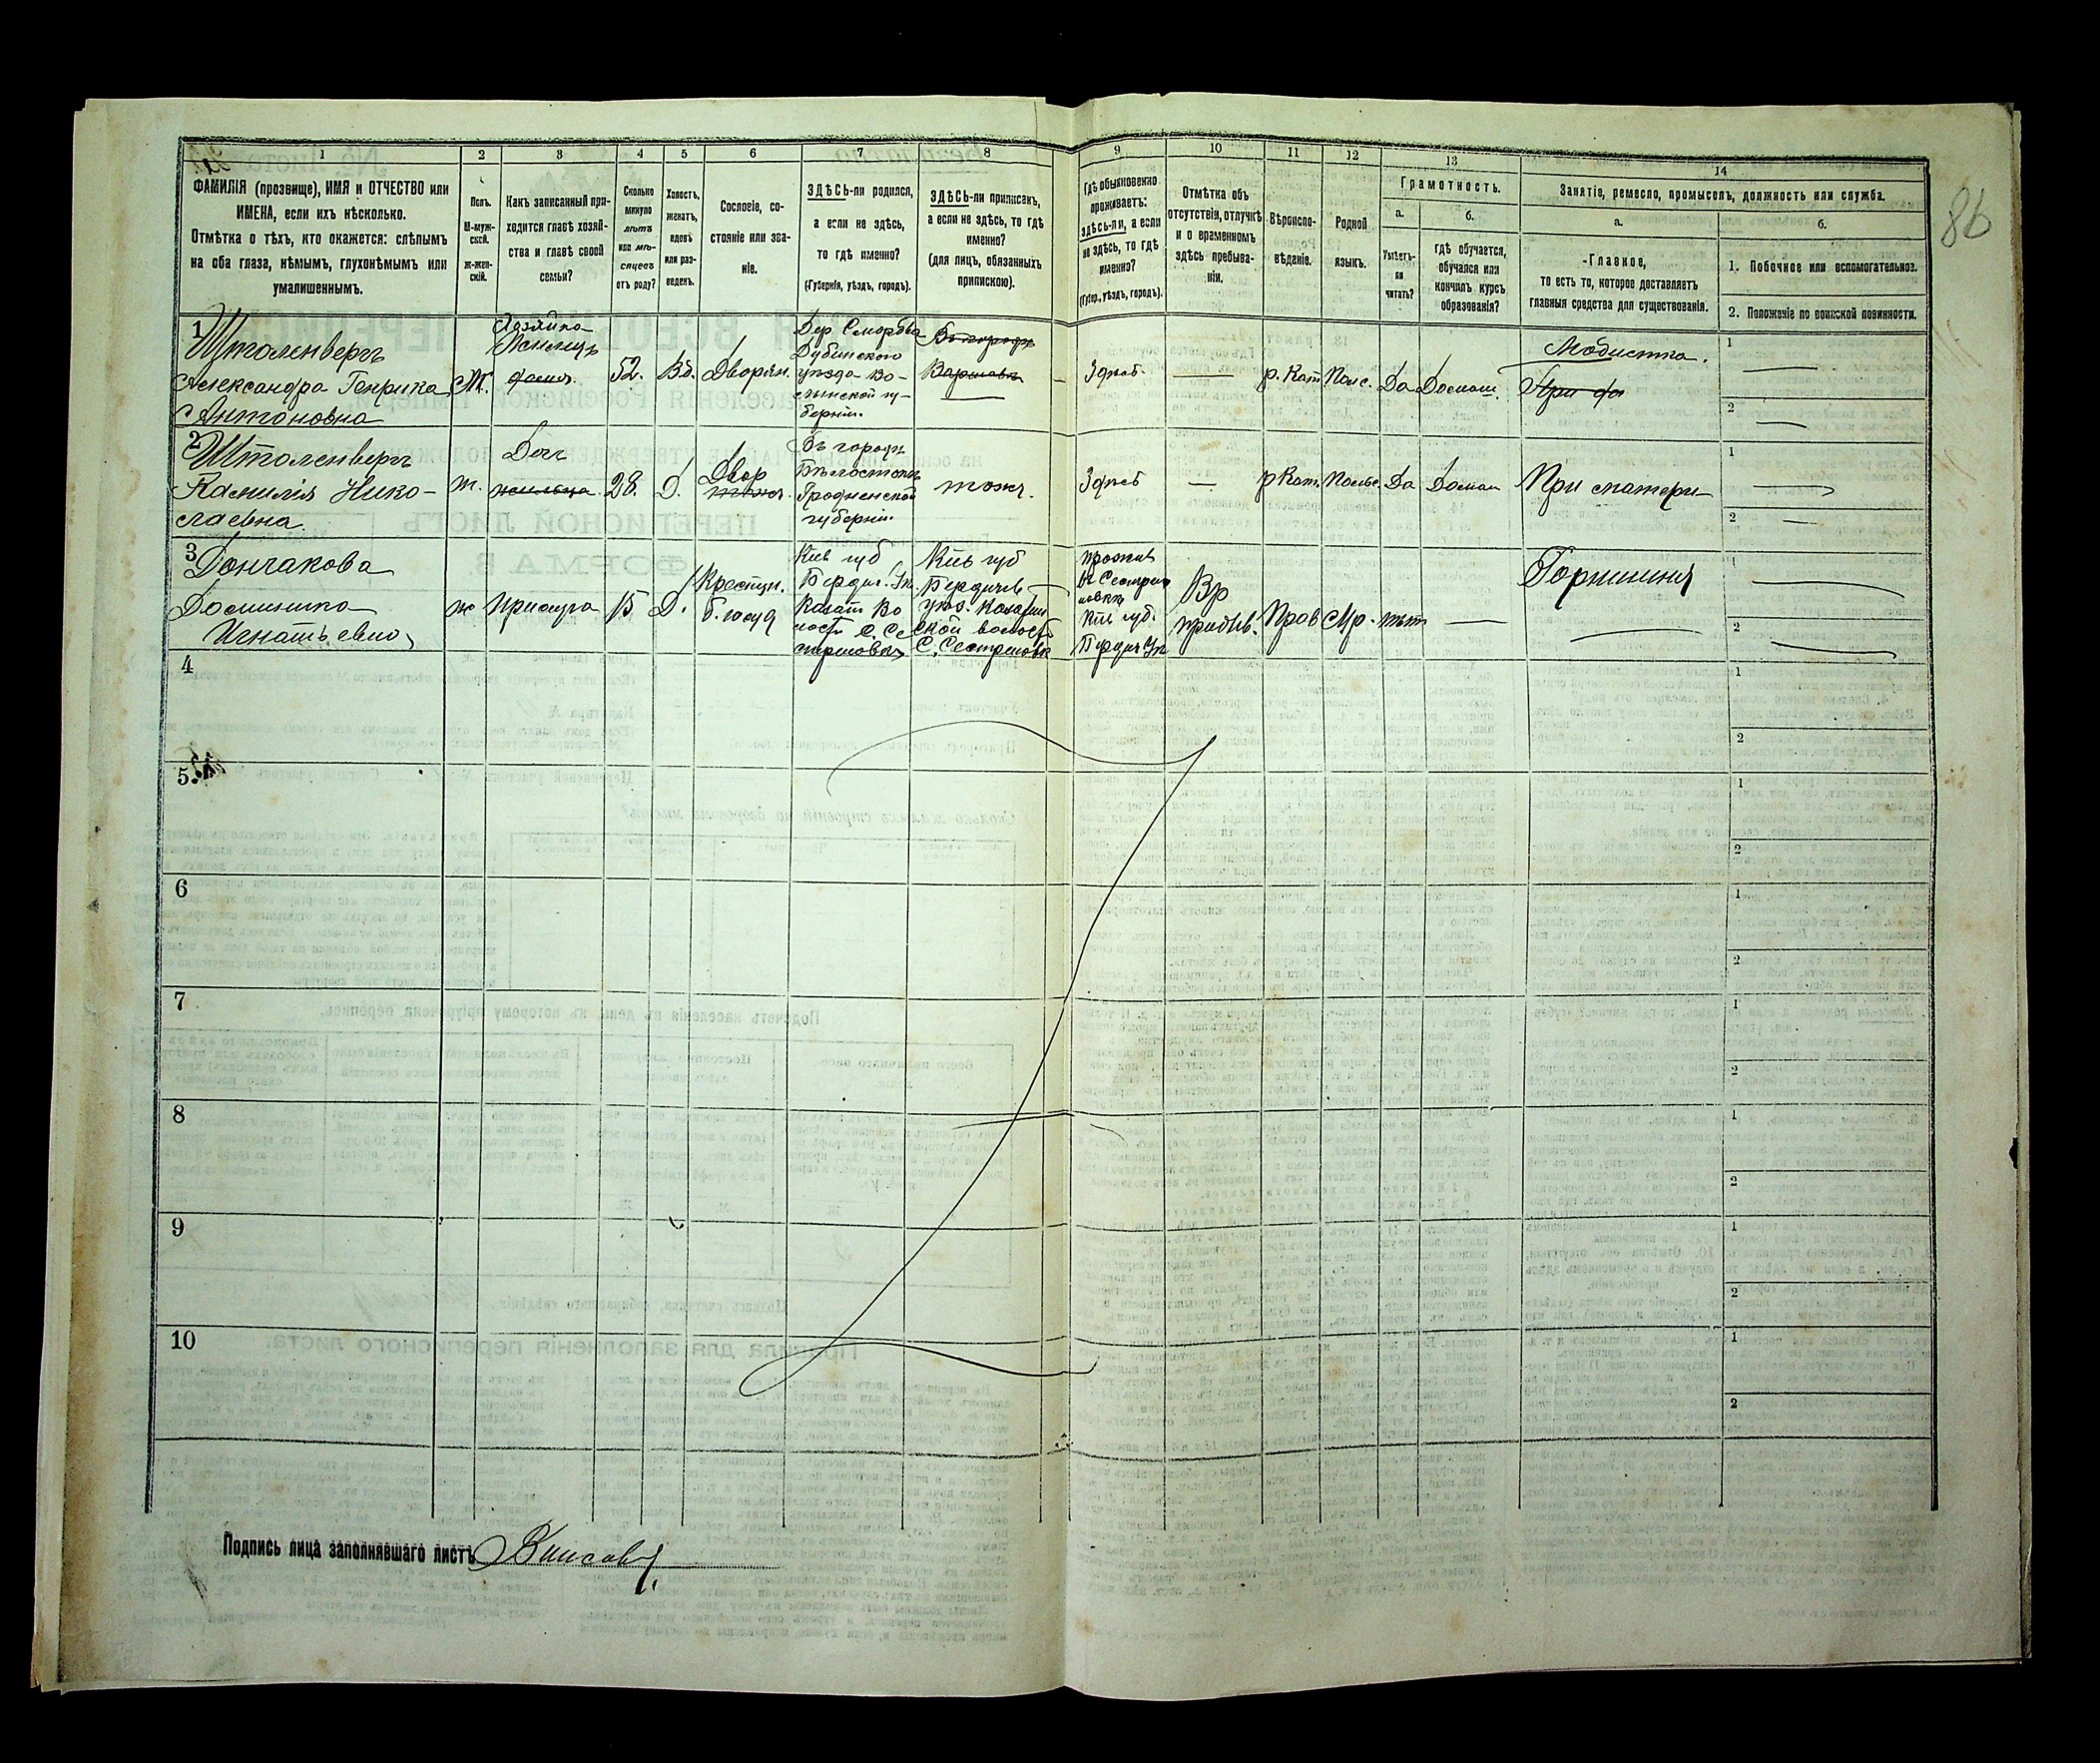 1 2 3 4 5 6 7 8 9 10 11 12 13 14
86
ФАМИЛІЯ (прозвище), ИМЯ и ОТЧЕСТВО или
ИМЕНА, если ихъ нѣсколько.
Отмѣтка о тѣхъ, кто окажется: слѣпымъ
на оба глаза, нѣмымъ, глухонѣмымъ или
умалишеннымъ.
Полъ.
М-муж-
ской.
Ж-жен-
скій.
Какъ записанный при-
ходится главѣ хозяй-
ства и главѣ своей
семьи?
Сколько
минуло
лѣтъ
или мѣ-
сяцевъ
отъ роду?
Холостъ,
женатъ,
вдовъ
или раз-
веденъ.
Сословіе, со-
стояніе или зва-
ніе.
ЗДѢСЬ-ли родился,
а если не здѣсь,
то гдѣ именно?
(Губернія, уѣздъ, городъ).
ЗДѢСЬ-ли приписанъ,
а если не здѣсь, то гдѣ
именно?
(для лицъ, обязанныхъ
припискою).
Гдѣ обыкновенно
проживаетъ:
здѣсь-ли, а если
не здѣсь, то гдѣ
именно?
(Губер., уѣздъ, городъ).
Отмѣтка объ
отсутствіи, отлучкѣ
и о временномъ
здѣсь пребыва-
ніи.
Вѣроиспо-
вѣданіе.
Родной
языкъ.
Грамотность.
а.
Умѣетъ-
ли
читать?
б.
гдѣ обучается,
обучался или
кончилъ курсъ
образованія?
Занятіе, ремесло, промыселъ, должность или служба.
а.
Главное,
то есть то, которое доставляетъ
главныя средства для существованія.
б.
1. Побочное или вспомогательное.
2. Положеніе по воинской повинности.
1
Штоленвергъ
Александра Генрика
Антоновна
Хозяйка
52.
Вд.
Дворян.
Дер Сморова
Дубинскаго
уѣзда Во-
лынской гу-
берніи.
Въ городѣ
Варшавѣ
Здѣсь
—
р. Кат
Полс.
Да
Домаш.
Модистка.
При
1
2
2
Штоленвергъ
Камилія Нико-
лаевна
Дочь
28.
Д.
Двор
Въ городѣ
Бѣлостокѣ
Гродненской
губерніи
тоже.
Здѣсь
—
р Кат.
Польс.
Да
Домаш
При матери
1
2
3
Гончакова
Доминика
Игнатьевна
ж
Прислуга
15
Д.
Крестьян.
Кіев губ
Бердич. Уѣ
Кіев губ
Бердичев
С. Сестриновк
Кіе губ.
Бердич Уѣ
Вр
пребыв.
Прав
Мр.
нѣт
—
Горничная
1
2
4
1
2
5.
1
2
6
1
2
7
1
2
8
1
2
9
1
2
10
1
2
Подпись лица заполнявшаго листъ